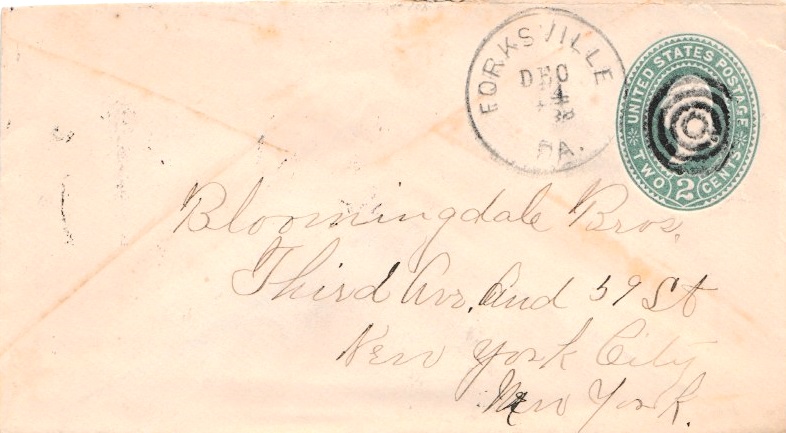 FORKSVILLE
DEC
4
PA.
UNITED STATES POSTAGE
TWO 2 CENTS
Bloomingdale Bros.
Third Ave. and 59 St
New York City
New York.